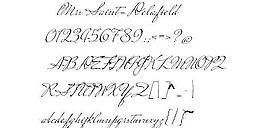 Mrs Saint-Delafield
0123456789:;<=>?@
ABCDEFGHIJKLMNOPQ
RSTUVWXYZ[\]^_`
abcdefghijklmnopqrstuvwxyz{|}~